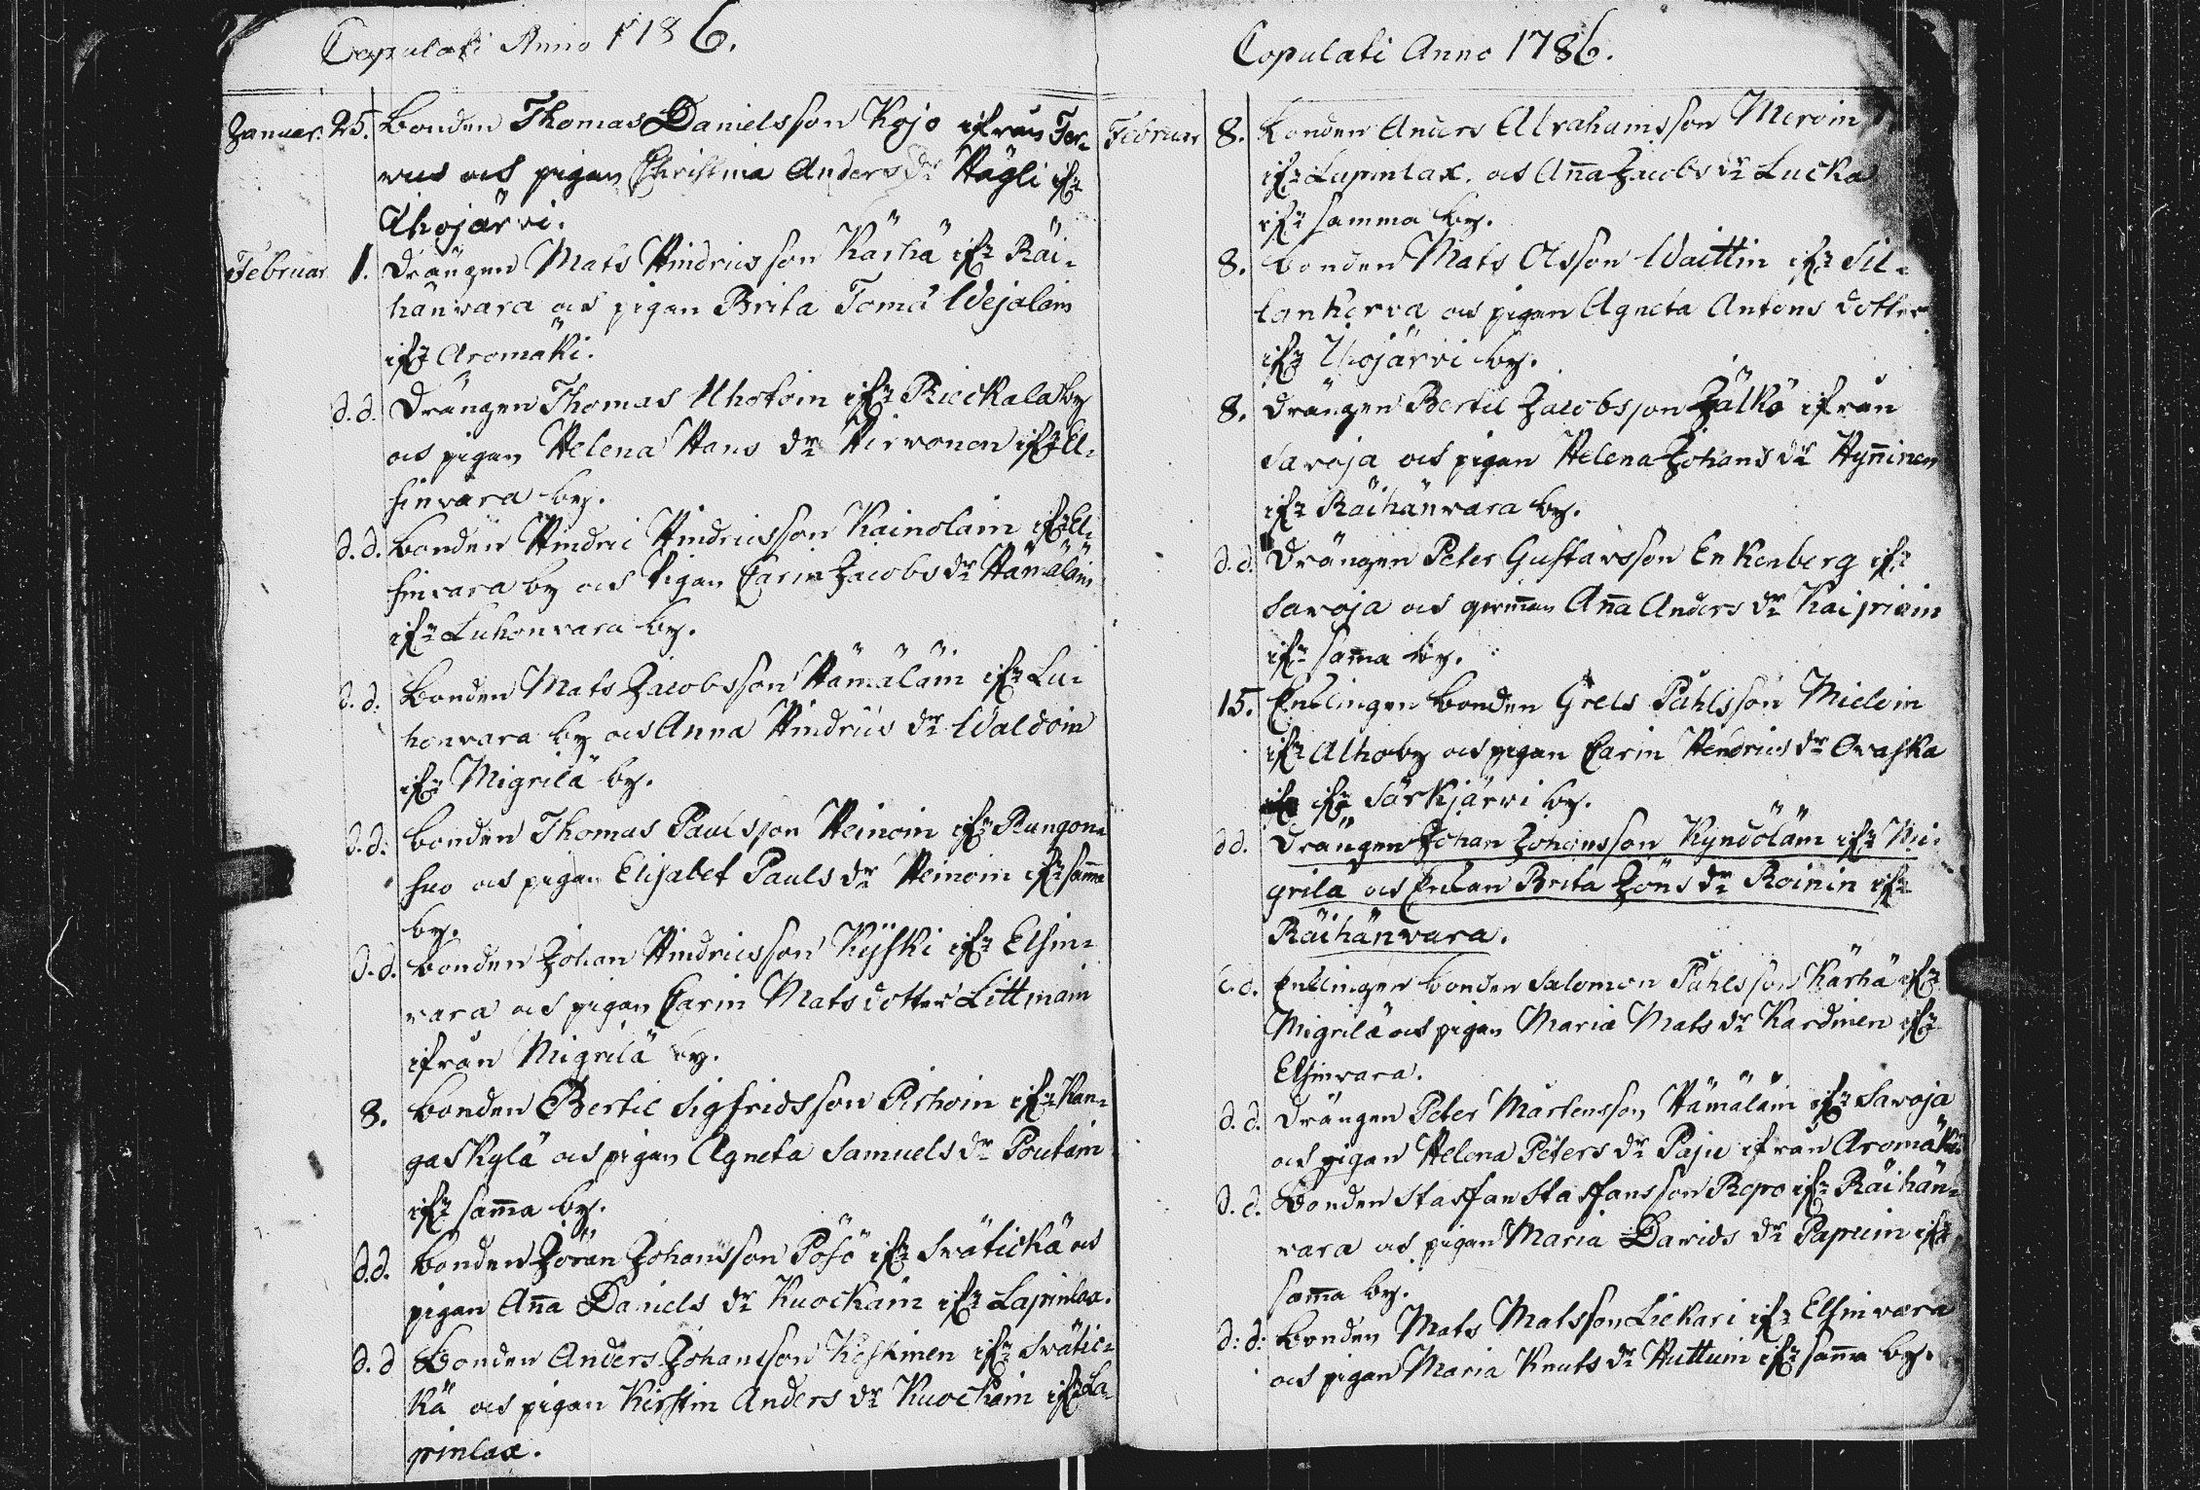 Copulati Anno 1786.
Januar. 25. Bonden Thomas Danielsson Kojo ifrån Ter-
vus och pigan Christina Anders dr Hägli ifr
Ihojärvi.
Februar 1. Drängen Mats Hindricsson Kärhä ifr Räi-
hänvara och pigan Brita Toma Wejalain
ifr Aromäki.
d.d. Drängen Thomas Uhotoin ifr Rieckala by
och pigan Helena Hans dr Hirvonen ifr El-
sinvara by.
d.d. Bonden Hindric Hindricsson Kainolain ifr El-
sinvara by och Pigan Carin Jacobs dr Hämäläin
ifr Luhonvara by.
d.d. Bonden Mats Jacobsson Hämäläin ifr Lu-
honvara by och Anna Hindrics dr Waldoin
ifr Migrilä by.
d.d. Bonden Thomas Paulsson Heinoin ifr Rungon-
suo och pigan Elisabet Pauls dr Heinoin ifr sam̄a
by.
d.d. Bonden Johan Hindricsson Kÿski ifr Elsin-
vara och pigan Carin Mats dotter Littmain
ifrån Migrilä by.
8. Bonden Bertil Sigfridsson Pirhoin ifr Kan-
gaskylä och pigan Agneta Samuels dr Poutain
ifr sam̄a by.
d.d. Bonden Jöran Johansson Pösö ifr Svätickä och
pigan An̄a Daniels dr Kuockain ifr Lapinlax.
d.d Bonden Anders Johansson Koskinen ifr Svätic-
kä och pigan Kirstin Anders dr Kuockain ifr La-
pinlax.
Copulati Anno 1786.
Februar 8. Bonden Anders Abrahamsson Meroin
ifr Lapinlax. och An̄a Jacobs dr Lucka
ifr samma by.
8. Bonden Mats Olsson Waittin ifr Sil-
lankorva och pigan Agneta Antons dotter
ifr Ihojärvi by.
8. Drängen Bertil Jacobsson Jälkö ifrån
Savoja och pigan Helena Johans dr Hyn̄inen
ifr Räihänvara by.
d.d. Drängen Peter Gustavsson Enkenberg ifr
Savoja och An̄a Anders dr Kaipiain
ifr sam̄a by.
15. Encklingen bonden Grels Påhlsson Mieloin
ifr Alho by och pigan Carin Hendrics dr Ovaska
ifr Särkjärvi by.
dd. Drängen Johan Johansson Kyndöläin ifr Mi-
grilä och Enckan Brita Jöns dr Roinin ifr
Räihänvara.
d.d. Encklingen bonden Salomon Påhlsson Kärhä ifr
Migrilä och pigan Maria Mats dr Kardinen ifr
Elsinvara.
d.d. Drängen Peter Mårtensson Hämäläin ifr Savoja
och pigan Helena Peters dr Paju ifrån Aromäki
d.d. Bonden Staffan Staffansson Repo ifr Räihän-
vara och pigan Maria Davids dr Papuin ifr
sam̄a by.
d:d: Bonden Mats Matsson Liekari ifr Elsinvara
och pigan Maria Knuts dr Huttuin ifr sam̄a by.